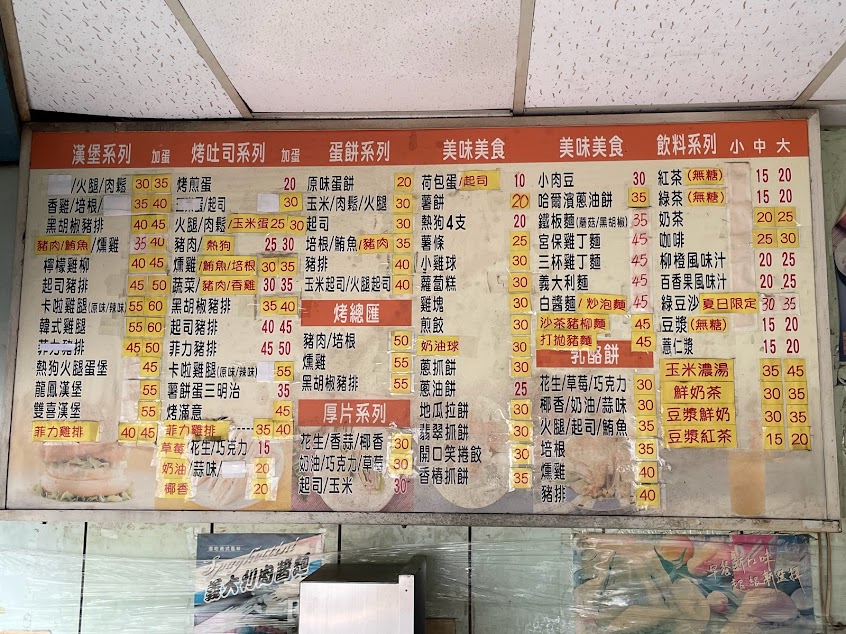 漢堡系列 加蛋
/火腿/肉鬆 30 35
香雞/培根/ 35 40
黑胡椒豬排 40 45
豬肉/鮪魚/燻雞 35 40
檸檬雞柳 40 45
起司豬排 45 50
卡啦雞腿(原味/辣味) 55 60
韓式雞腿 55 60
菲力豬排 45 50
熱狗火腿蛋堡 45
龍鳳漢堡 55
雙喜漢堡 55
菲力雞排 40 45
烤吐司系列 加蛋
烤煎蛋 20
/起司 30
火腿/肉鬆/玉米蛋 25 30
豬肉/熱狗 25 30
燻雞/鮪魚/培根 30 35
蔬菜/豬肉/香雞 30 35
黑胡椒豬排 35 40
起司豬排 40 45
菲力豬排 45 50
卡啦雞腿(原味/辣味) 55
薯餅蛋三明治 35
烤滿意 45
菲力雞排 35 40
草莓/花生/巧克力 15
奶油/蒜味/ 20
椰香 20
蛋餅系列
原味蛋餅 20
玉米/肉鬆/火腿 30
起司 30
培根/鮪魚/豬肉 35
豬排 40
玉米起司/火腿起司 40
烤總匯
豬肉/培根 50
燻雞 55
黑胡椒豬排 55
厚片系列
花生/香蒜/椰香 30
奶油/巧克力/草莓 30
起司/玉米 30
美味美食
荷包蛋/起司 10
薯餅 20
熱狗4支 20
薯條 25
小雞球 30
蘿蔔糕 30
雞塊 30
煎餃 30
奶油球 30
蔥抓餅 30
蔥油餅 25
地瓜拉餅 30
翡翠抓餅 30
開口笑捲餃 30
香椿抓餅 35
美味美食
小肉豆 30
哈爾濱蔥油餅 35
鐵板麵(蘑菇/黑胡椒) 35
宮保雞丁麵 45
三杯雞丁麵 45
義大利麵 45
白醬麵/炒泡麵 45
沙茶豬柳麵 45
打拋豬麵 45
乳酪餅
花生/草莓/巧克力 30
椰香/奶油/蒜味 30
火腿/起司/鮪魚 35
培根 35
燻雞 40
豬排 40
飲料系列 小 中 大
紅茶(無糖) 15 20
綠茶(無糖) 15 20
奶茶 20 25
咖啡 25 30
柳橙風味汁 20 25
百香果風味汁 20 25
綠豆沙 夏日限定 30 35
豆漿(無糖) 15 20
薏仁漿 15 20
玉米濃湯 35 45
鮮奶茶 35 45
豆漿鮮奶 30 35
豆漿紅茶 15 20
Spaghetti
義大利肉醬麵